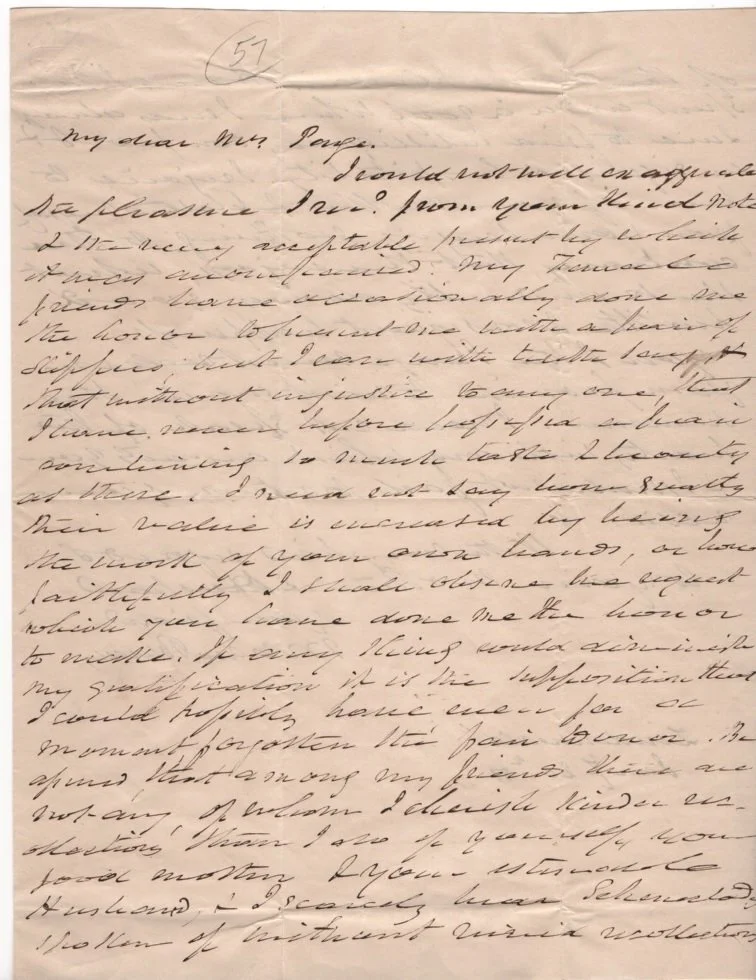 57
My dear Mrs Paige.
I could not well exaggerate
the pleasure I recd. from your kind note
& the very acceptable present by which
it was accompanied. My Female
friends have occasionally done me
the honor to present me with a pair of
slippers, but I can with truth say
that without injustice to any one, that
I have never before possessed a pair
combining so much taste & beauty
as these. I need not say how greatly
their value is increased by being
the work of your own hands, or how
faithfully I shall observe the request
which you have done me the honor
to make. If any thing could diminish
my gratification it is the supposition that
I could possibly have even for a
moment forgotten the fair donor. Be
assured, that among my friends there are
not any of whom I cherish kinder re-
collections than I do of yourself, your
good mother & your estimable
Husband, & I scarcely hear Schenectady
spoken of without vivid recollections